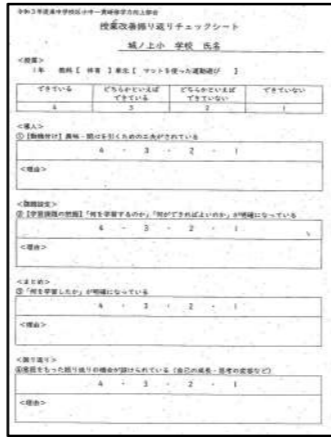 令和３年度美中学校区小中一貫研修学力向上部会
授業改善振り返りチェックシート
城ノ上小 学校 氏名
<授業>
１年 教科【 体育 】単元【 マットを使った運動遊び 】
できている どちらかといえばできている どちらかといえばできていない できていない
4 3 2 1
<導入>
①【動機付け】興味・関心を引くための工夫がされている
4 - 3 - 2 - 1
<理由>
<課題設定>
②【学習課題の把握】「何を学習するのか」「何ができればよいのか」が明確になっている
4 - 3 - 2 - 1
<理由>
<まとめ>
③「何を学習したか」が明確になっている
4 - 3 - 2 - 1
<理由>
<振り返り>
④意図をもった振り返りの機会が設けられている（自己の成長・思考の変容など）
4 - 3 - 2 - 1
<理由>